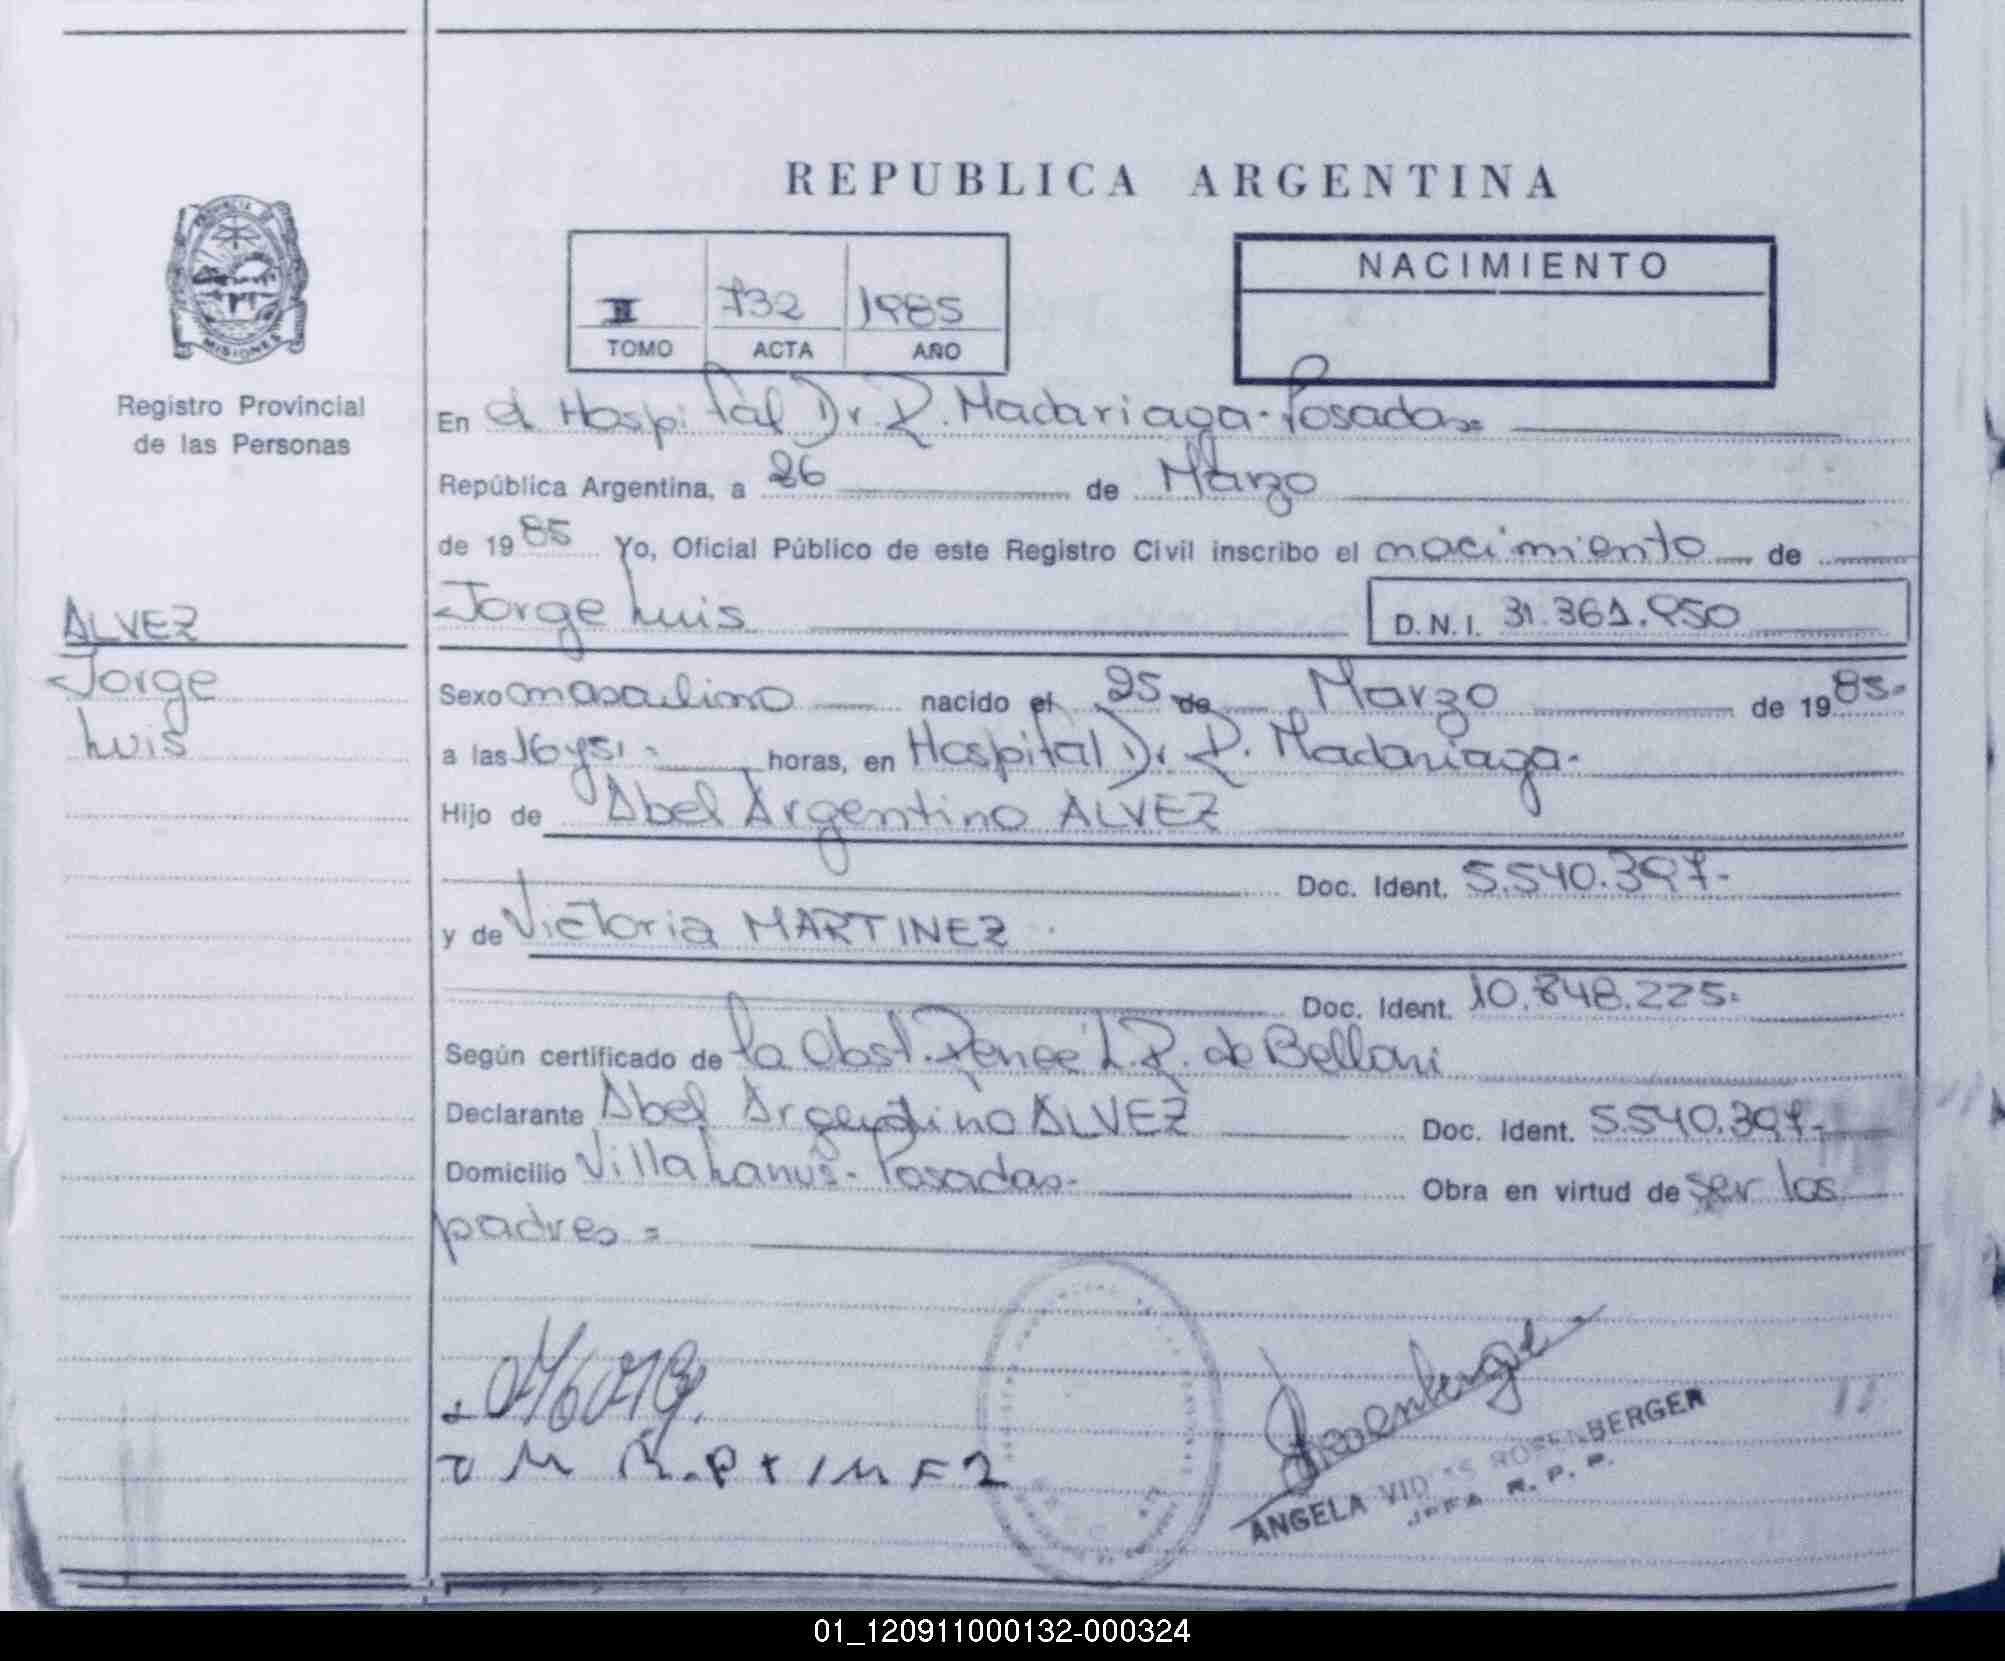 REPUBLICA ARGENTINA
PROVINCIA DE MISIONES
Registro Provincial
de las Personas
II 732 1985
TOMO ACTA AÑO
NACIMIENTO
En el Hospital Dr. R. Madariaga - Posadas
República Argentina, a 26 de Marzo
de 1985 Yo, Oficial Público de este Registro Civil inscribo el nacimiento de
Jorge Luis
D.N.I. 31.361.950
ALVEZ
Jorge
Luis
Sexo masculino nacido el 25 de Marzo de 1985.
a las 16 y 51 - horas, en Hospital Dr. R. Madariaga.
Hijo de Abel Argentino ALVEZ
Doc. Ident. 5.540.397-
y de Victoria MARTINEZ
Doc. Ident. 10.848.225.
Según certificado de la Obst. Renee L. R. de Belloni
Declarante Abel Argentino ALVEZ Doc. Ident. 5.540.397-
Domicilio Villa Lanus - Posadas - Obra en virtud de ser los
padres =
ANGELA ROSENBERGER
JEFA R. P. P.
01_120911000132-000324